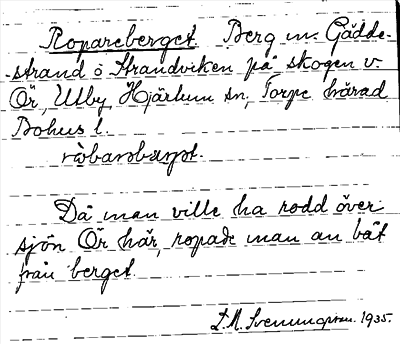 Ropareberget Berg m. Gädde-
strand o Strandviken på skogen v.
Ör, Ulby, Hjärtum sn, Torpe härad
Bohus l.
Då man ville ha rodd över
sjön Ör här, ropade man an båt
från berget.
Svenungsson. 1935.